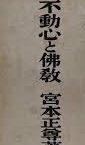 不動心と佛教 宮本正尊著